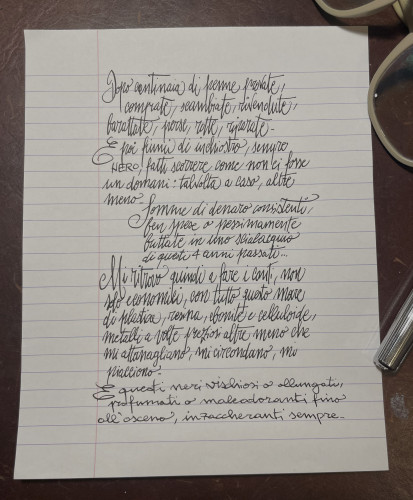 Dopo centinaia di penne provate,
comprate, scambiate, rivendute,
barattate, perse, rotte, riparate-
E poi fiumi di inchiostro, sempre
NERO, fatti scorrere come non ci fosse
un domani: talvolta a caso, altre
meno-
Somme di denaro consistenti,
ben spese o pessimamente
buttate in uno scialacquio
di questi 4 anni passati...
Mi ritrovo quindi a fare i conti, non
solo economici, con tutto questo mare
di plastica, resina, ebanite e celluloide,
metalli a volte preziosi altre meno che
mi attanagliano, mi circondano, mi
piacciono-
E questi neri vischiosi o allungati,
profumati o maleodoranti fino
all'osceno, inzaccheranti sempre-